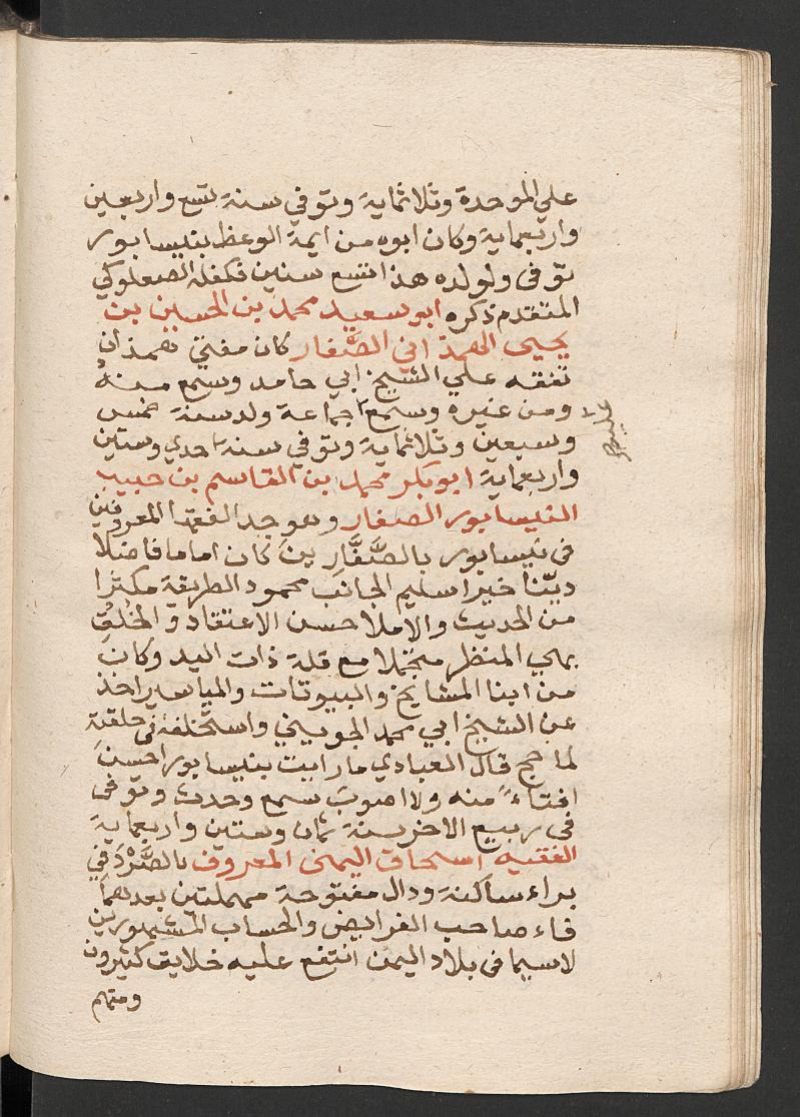 علي الموحدة وثلاثماية وتوفي سنة تسع واربعين
واربعماية وكان ابوه من ايمة الوعظ بنيسابور
توفى ولولده هذا تسع سنين فكفله الصعلوكي
المتقدم ذكره ابو سعيد محمد بن الحسين بن
يحيى الهمذاني الصَّفار كان مفتي همذان
تفقه علي الشيخ ابي حامد وسمع منهُ
ومن غيره وسمع جماعة ولد سنة خمس
وسبعين وثلاثماية وتوفي سنة احدي وستين
واربعماية ابو بكر محمد بن القاسم بن حبيب
النيسابور الصفار وهو جد الفقها المعروفين
في نيسابور بالصَّفَّارين كان اماما فاضلا
ديّنا خيرا سليم الجانب محمود الطريقة مكثرا
من الحديث والاملا حسن الاعتقاد والخُلُقِ
بهي المنظر متجملا مع قلة ذات اليد وكان
من ابنا المشايخ والبيوتات والمياسير اخذ
عن الشيخ ابي محمد الجويني واستخلفه في حلقته
لما حج قال العبادي ما رايت بنيسابور احسن
افتاءً منه ولا اصوب سمع وحدث وتوفى
في ربيع الاخر سنة ثمان وستين واربعماية
الفقيه اسحاق اليمنى المعروف بالصَّرْدَفِي
براء ساكنة ودال مفتوحة مهملتين بعدهما
فاء صاحب الفرايض والحساب المشهورين
لاسيما في بلاد اليمن انتفع عليه خلايق كثيرون
ومنهم